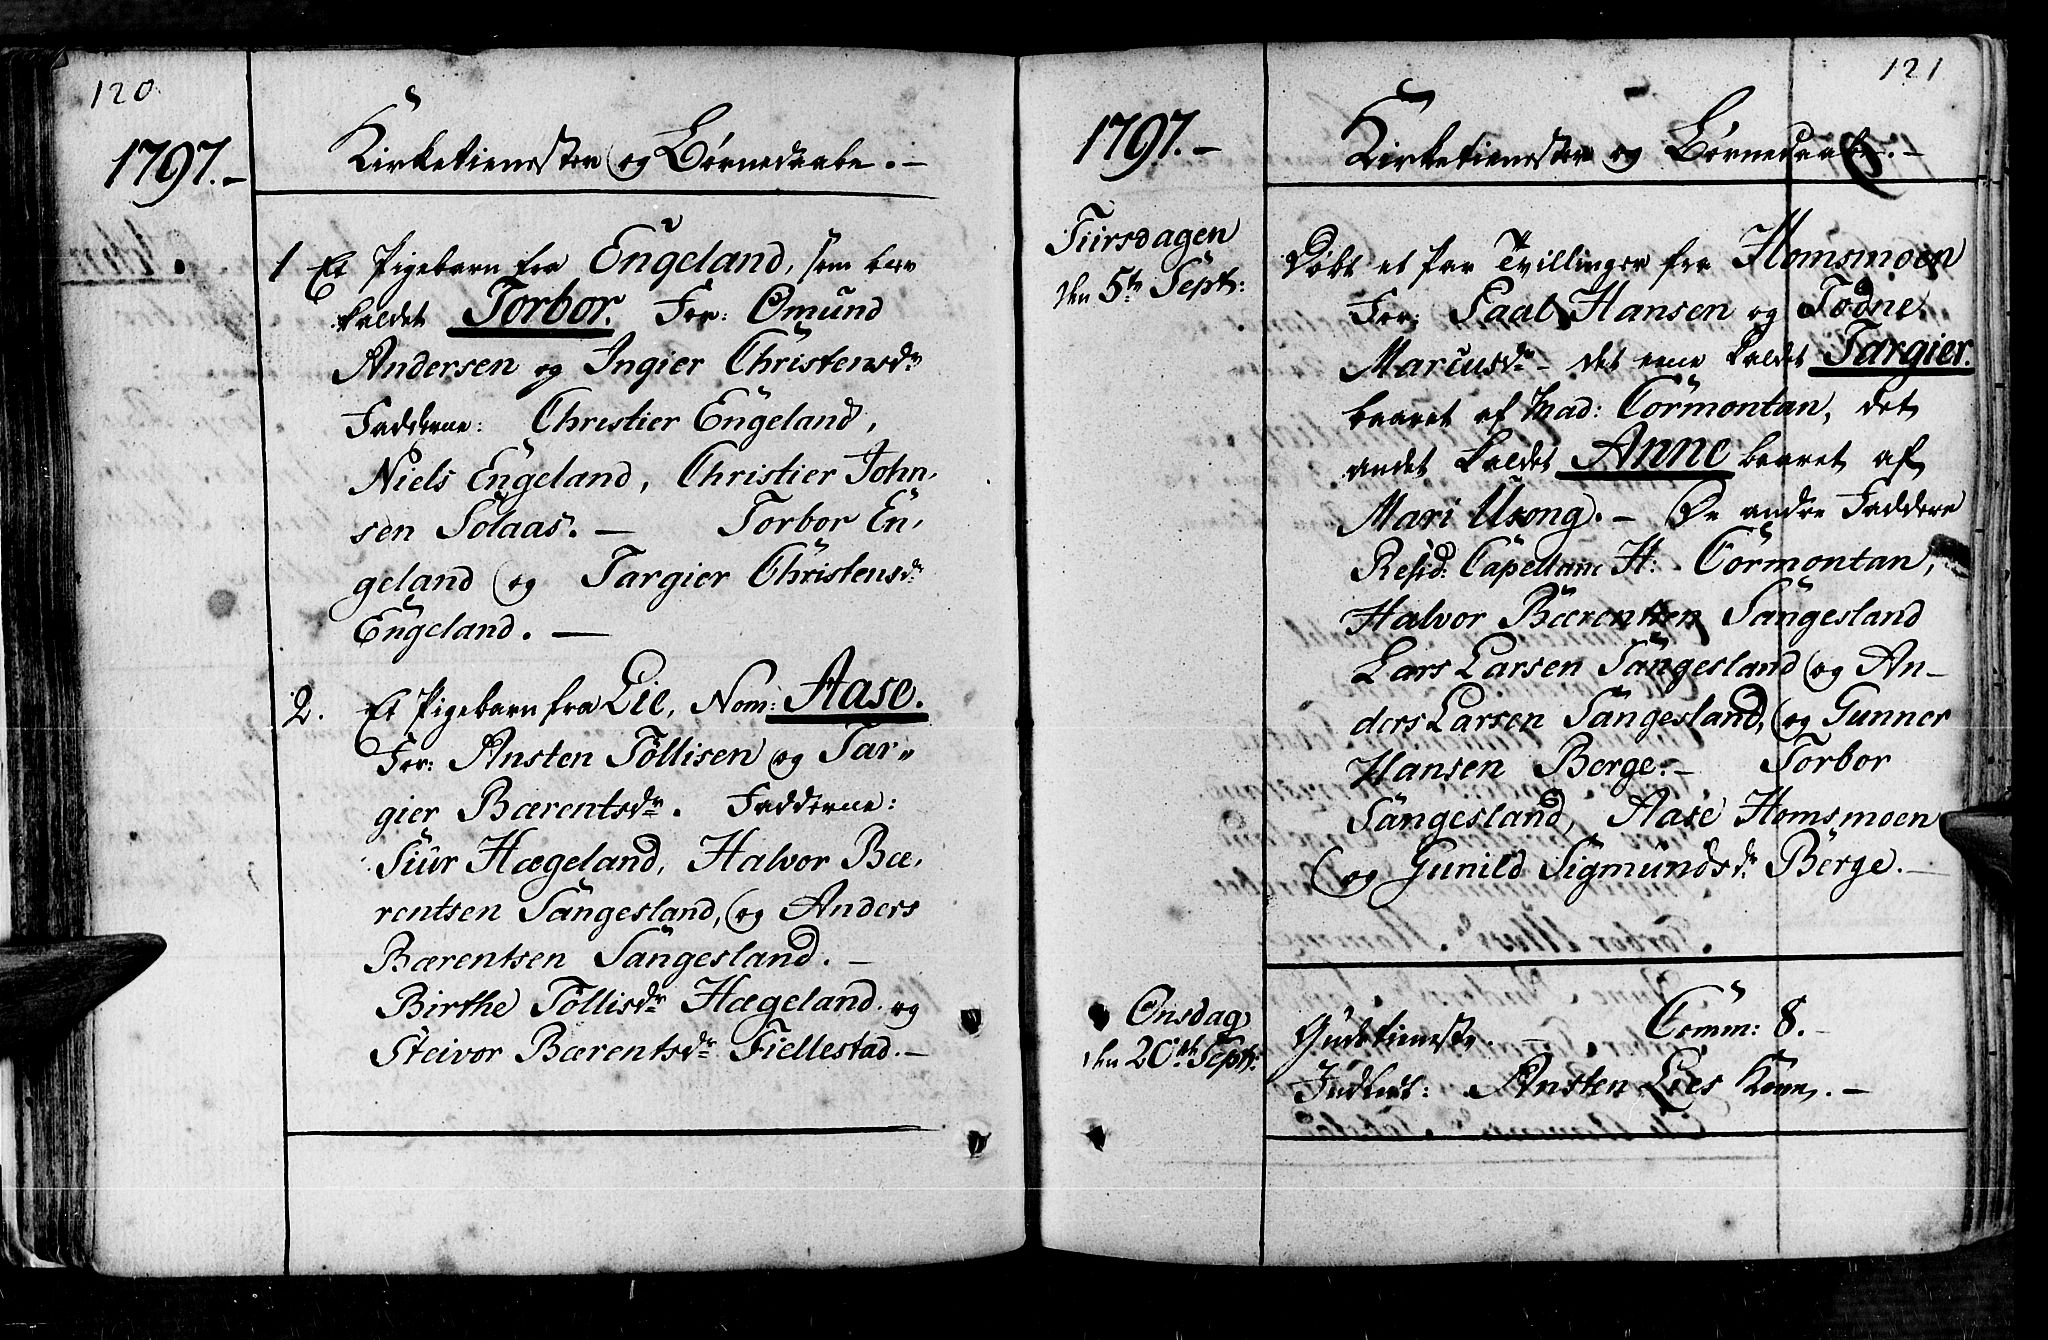 120
1797.-
Kirketienester og Børnedaabe. -
1 Et Pigebarn fra Engeland, som bev
kaldet Torbor. For: Omund
Andersen og Ingier Christensdr
Fadderne: Christier Engeland,
Niels Engeland, Christier John,
sen Solaas. - Torbor En,
geland og Targier Christensdr
Engeland. -
2. Et Pigebarn fra Lie, Nom: Aase.
For: Ansten Tollisen og Tar„
gier Bærentsdr. Fadderne:
Siur Hægeland, Halvor Bæ,
rentsen Sangesland, og Anders
Bærentsen Sangesland. -
Birthe Tollisdr Hægeland og
Steivor Bærentsdr Fiellestad. -
121
1797. -
Kirketienester og Børnedaabe. -
Tiirsdagen
den 5te Septr:
Døbt et Par Tvillinger fra Homsmoen
For: Paal Hansen og Todne
Marcusdr - det eene kaldet Targier.
baaret af Mad: Cormontan, det
andet kaldet Anne baaret af
Mari Usong. - De andre Faddere
Resid: Capellan H: Cormontan,
Halvor Bærentsen Sangesland
Lars Larsen Sangesland og An-
ders Larsen Sangesland, og Gunner
Hansen Berge. - Torbor
Sangesland, Aase Homsmoen
og Gunild Sigmundsdr Berge. -
Onsdag
den 20de Septr:
Gudstieneste. - Comm: 8. -
Indledt: Ansten Lies Kone. -